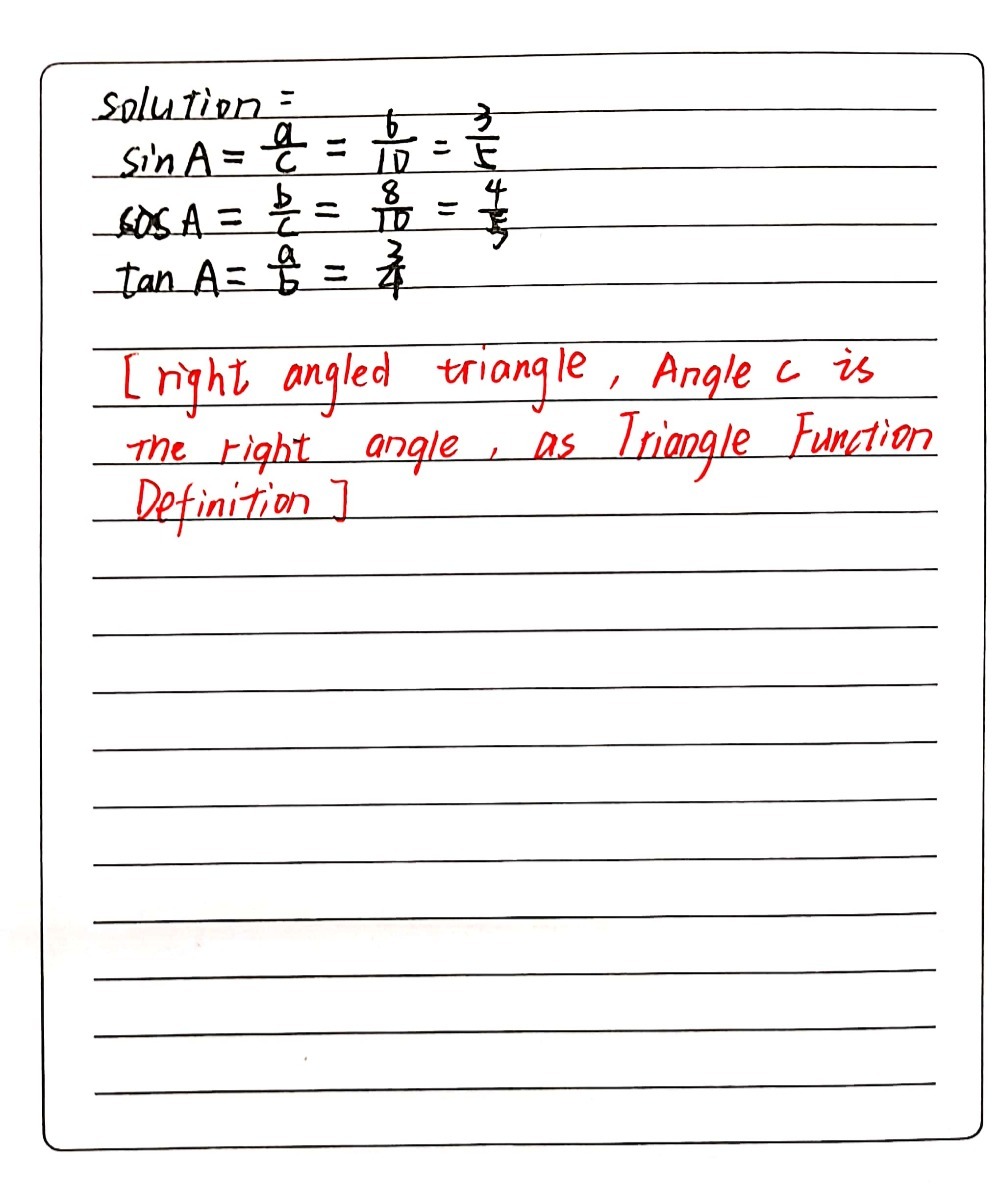 solution =
sin A = a/c = 6/10 = 3/5
cos A = b/c = 8/10 = 4/5
tan A = a/b = 3/4
[ right angled triangle , Angle c is
The right angle , as Triangle Function
Definition ]